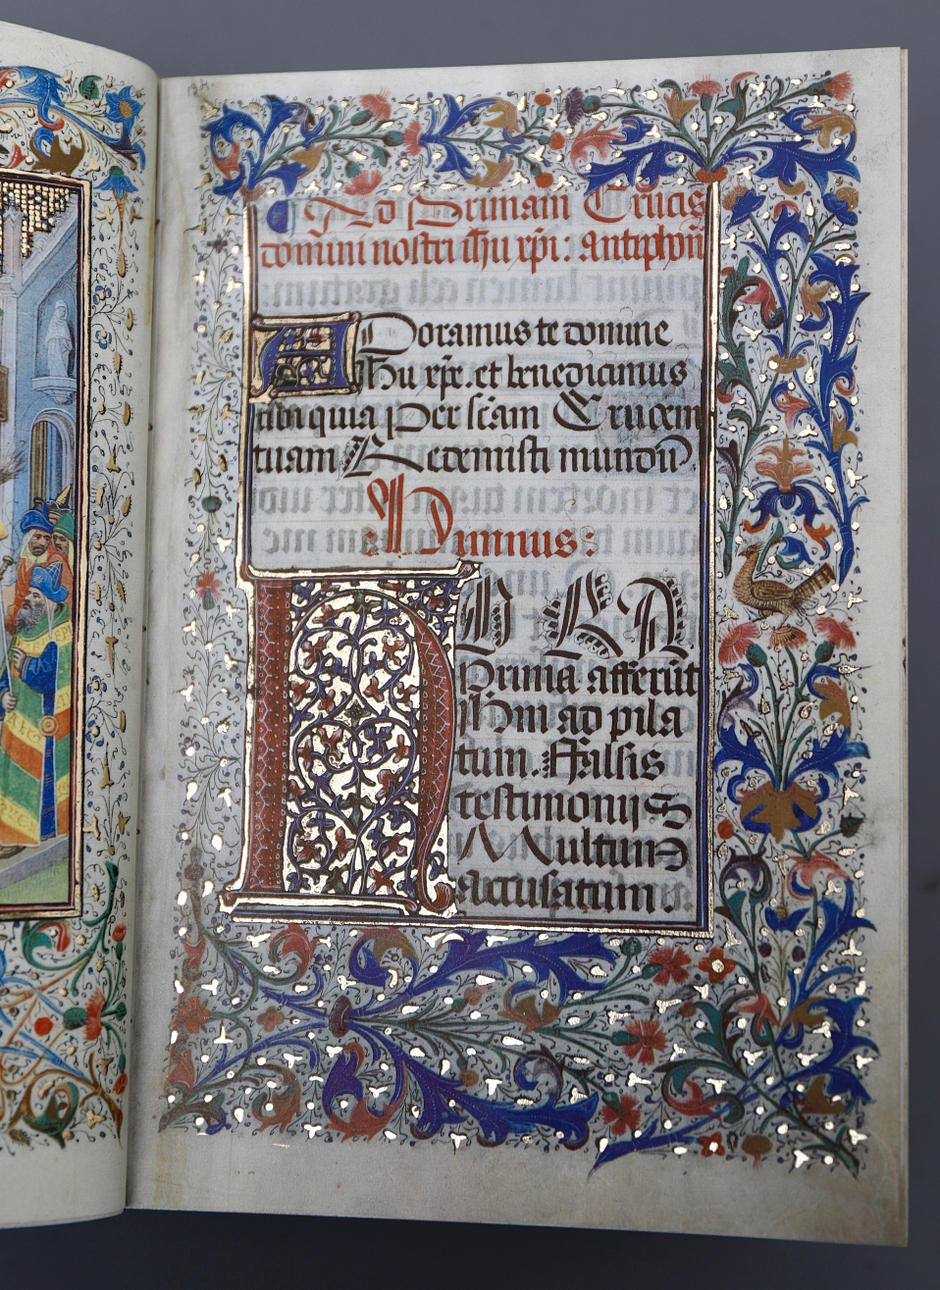 Ad Primam Crucis
domini nostri ihu xpi: antiphon
Adoramus te domine
ihu xpe. et benedicimus
tibi quia per scam Crucem
tuam Redemisti mundū.
Himnus:
HORA
Prima afferūt
ihm ad pila
tum. Falsis
testimonijs
Multum
accusatum.